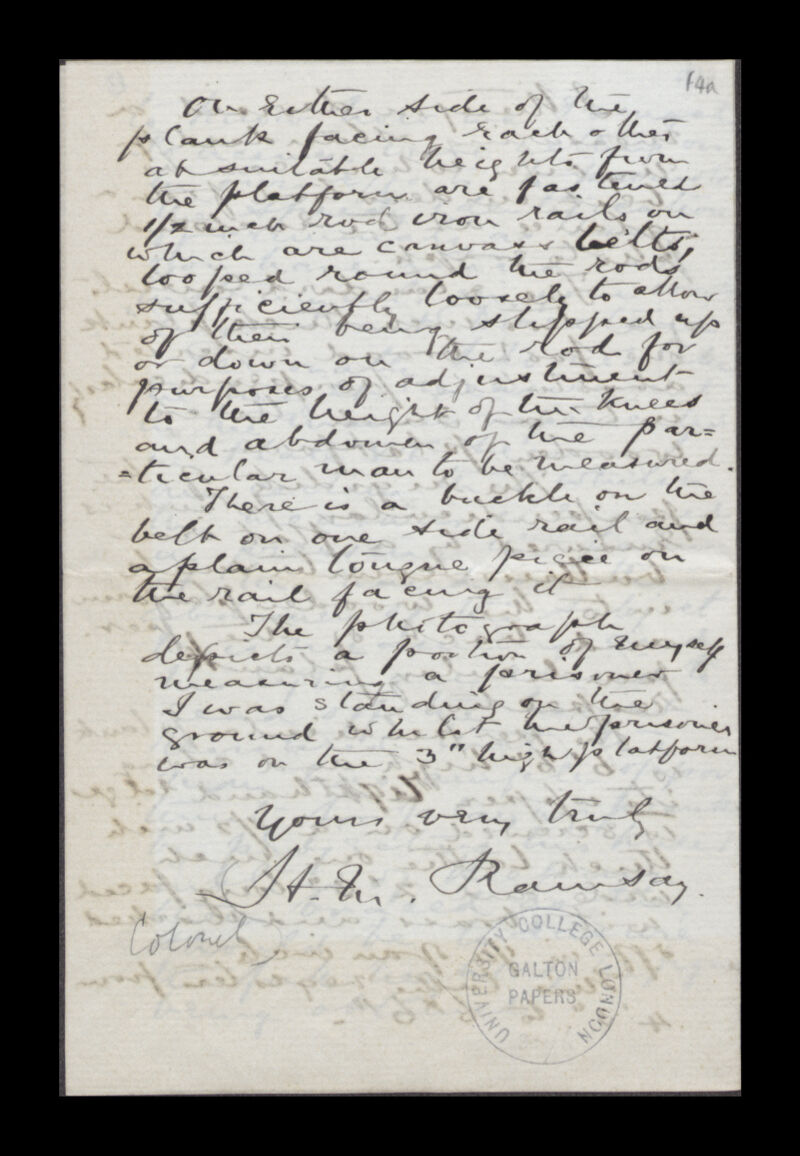 14a
On Either side of the
plank facing each other
at suitable heights from
the platform are fastened
1/2 inch rod iron rails on
which are canvass belts,
looped round the rods
sufficiently loosely to allow
of their being slipped up
or down on the rod for
purposes of adjustment
to the height of the knees
and abdomen of the par=
=ticular man to be measured.
There is a buckle on the
belt on one side rail and
a plain tongue piece on
the rail facing it
The photograph
depicts a portion of myself
measuring a prisoner
I was standing on the
ground whilst the prisoner
was on the 3" high platform
Yours very truly
H. M. Ramsay.
Colonel
UNIVERSITY COLLEGE LONDON
GALTON
PAPERS